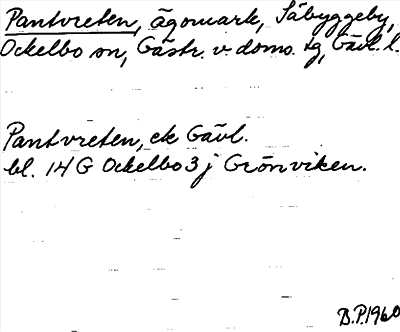 Pantvreten, ägomark, Såbyggeby,
Ockelbo sn, Gästr. v. doms. tg, Gävl. l.
Pantvreten, ek Gävl.
bl. 14 G Ockelbo 3 j Grönviken.
B.P. 1960